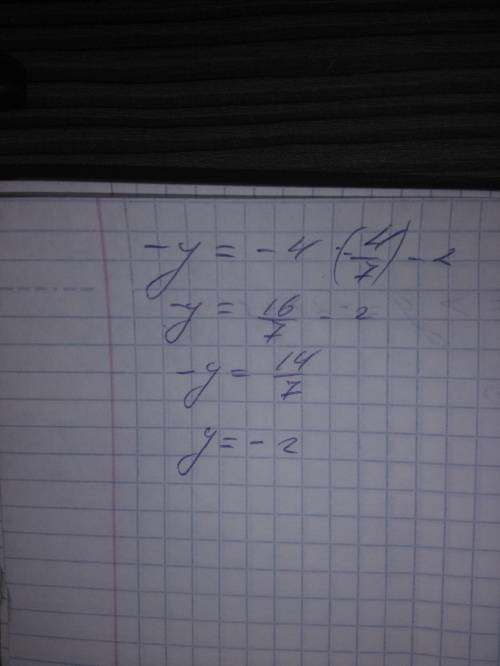 -y = -4 · (-4/7) - 2
-y = 16/7 - 2
-y = 14/7
y = - 2